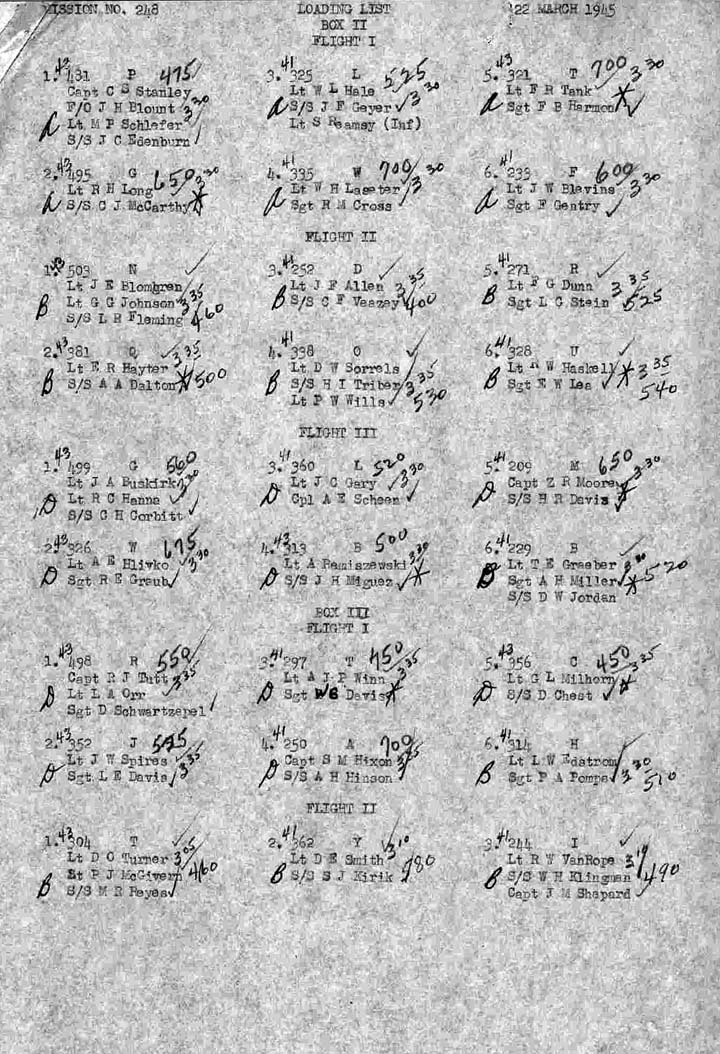 MISSION NO. 248 LOADING LIST 22 MARCH 1945
BOX II
FLIGHT I
1. 43 481 P 475
Capt C S Stanley
F/O J H Blount 3 30
A Lt M P Schlefer
S/S J C Edenburn
3. 41 325 L 525
Lt W L Hale 3 30
A S/S J F Geyer
Lt S Reamsy (Inf)
5. 43 321 T 700
Lt F R Tank 3 30
A Sgt F B Harmon
2. 43 495 G 650
Lt R H Long 3 30
A S/S C J McCarthy
4. 41 335 W 700
Lt W H Laseter 3 30
A Sgt R M Cross
6. 41 233 F 600
Lt J W Blevins 3 30
A Sgt F Gentry
FLIGHT II
1. 43 503 N
Lt J E Blomgren
B Lt G G Johnson 3 35
S/S L R Fleming 460
3. 41 252 D
Lt J F Allen 3 35
B S/S C F Veazey 400
5. 41 271 R
Lt F G Dunn 3 35
B Sgt L G Stein 525
2. 43 381 Q 3 35
Lt E R Hayter
B S/S A A Dalton 500
4. 41 338 O
Lt D W Sorrels
B S/S H I Triber 3 35
Lt P W Wills 530
6. 41 328 U
Lt R W Haskell 3 35
B Sgt E W Lea 540
FLIGHT III
1. 43 499 G 560
Lt J A Buskirk 3 30
D Lt R C Hanna
S/S C H Corbitt
3. 41 360 L 520
Lt J C Gary 3 30
D Cpl A E Scheen
5. 41 209 M 650
Capt Z R Moore 3 30
D S/S H R Davis
2. 43 326 W 675
Lt A E Hlivko 3 30
D Sgt R E Graub
4. 43 313 B 500
Lt A Remiszewski 3 30
D S/S J H Miguez
6. 41 229 B
Lt T E Graeber 3 30
Sgt A H Miller 520
S/S D W Jordan
BOX III
FLIGHT I
1. 43 498 R 550
Capt R J Tutt 3 35
D Lt L A Orr
Sgt D Schwartzepel
3. 41 297 T 450
Lt A J P Winn 3 35
D Sgt Davis
5. 43 356 C 450
Lt G L Milhorn 3 35
D S/S D Chest
2. 43 352 J
Lt J W Spires
D Sgt L E Davis 3 35
4. 41 250 A 700
Capt S M Hixon
D S/S A H Hinson
6. 41 314 H
Lt L W Edstrom
B Sgt P A Pompa 3 30 510
FLIGHT II
1. 43 304 T
Lt D O Turner 3 05
B Lt P J McGivern 460
S/S M R Reyes
2. 41 362 Y
Lt D E Smith 3 10
B S/S S J Kirik 780
3. 41 244 I
Lt R W VanRope 3 10
B S/S W H Klingman 490
Capt J M Shepard